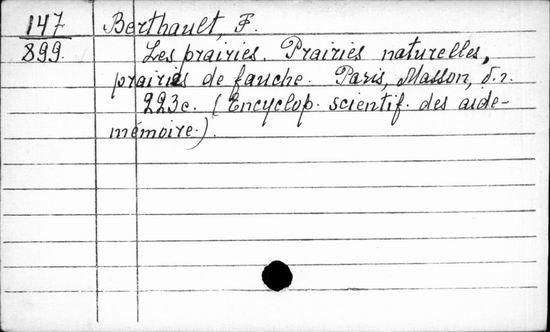 147 Berthault, F.
899. Les prairies. Prairies naturelles,
prairies de fauche. Paris, Masson, б.г.
223с. (Encyclop. scientif. des aide-
mémoire.).